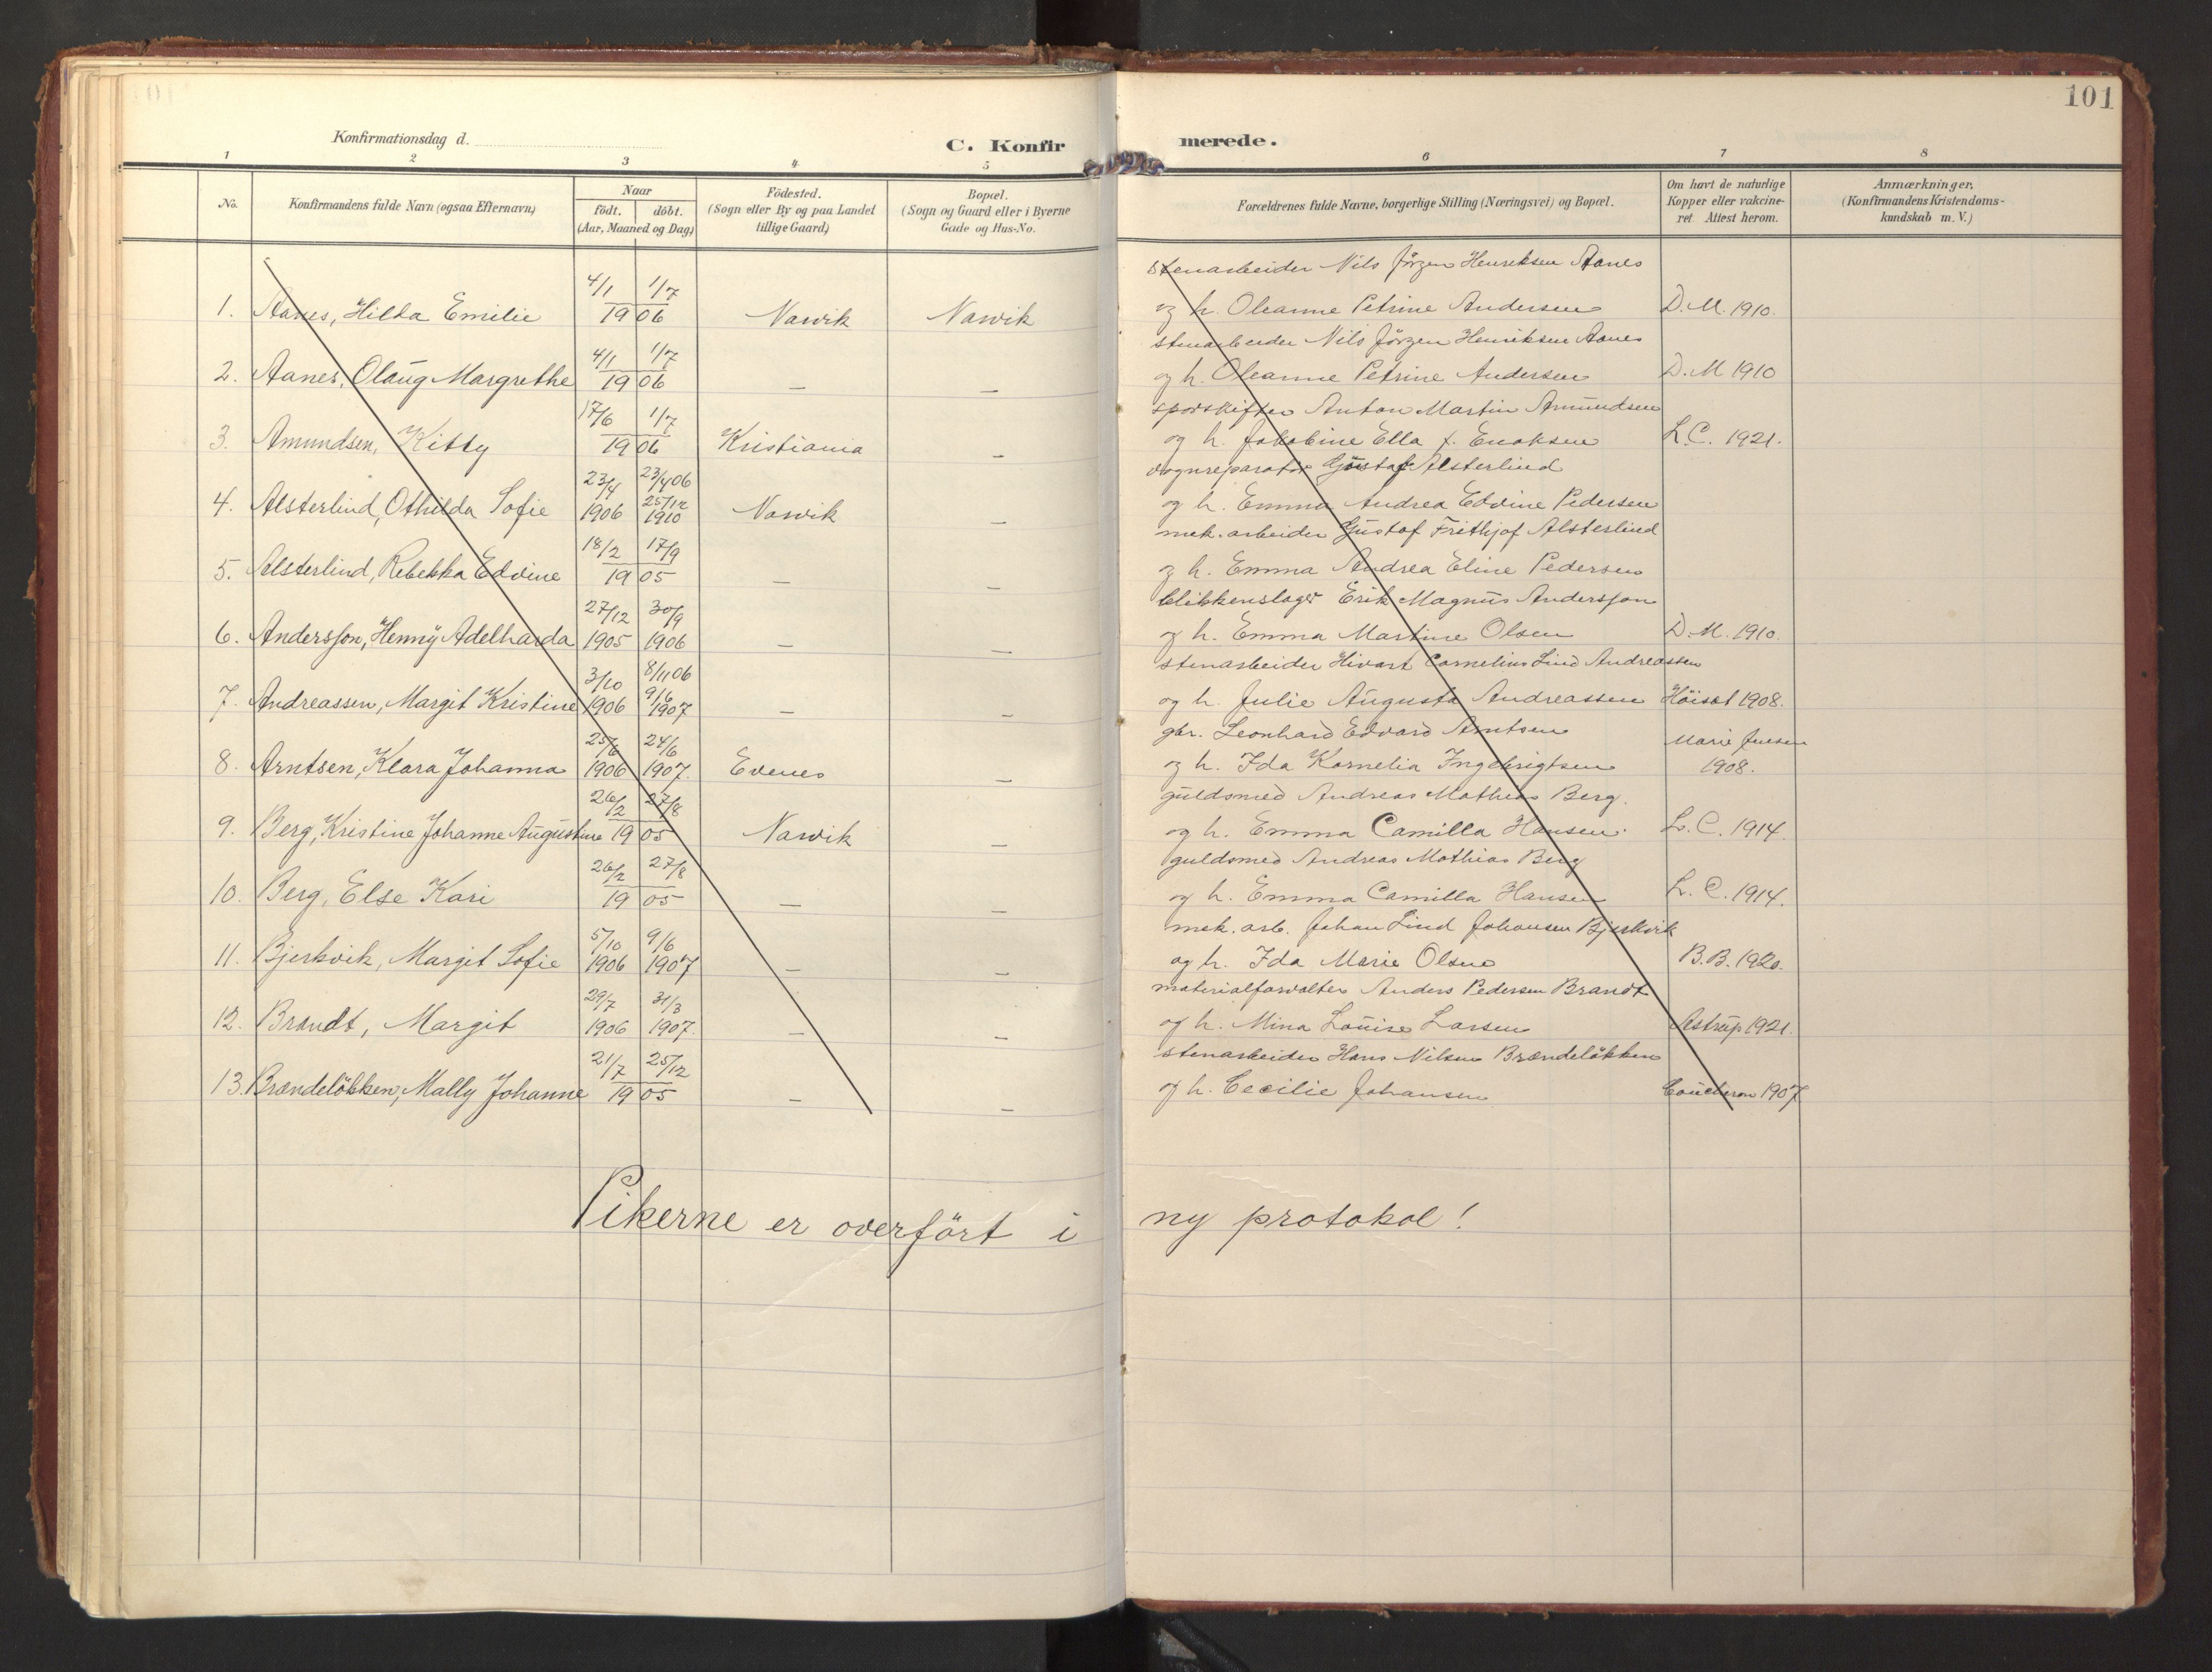 101
Konfirmationsdag d.
C. Konfir merede.
1 2 3 4 5 6 7 8
No.
Konfirmandens fulde Navn (ogsaa Efternavn)
Naar
födt. döbt.
(Aar, Maaned og Dag)
Födested.
(Sogn eller By og paa Landet
tillige Gaard)
Bopæl.
(Sogn og Gaard eller i Byerne
Gade og Hus-No.
Forældrenes fulde Navne, borgerlige Stilling (Næringsvei) og Bopæl.
Om havt de naturlige
Kopper eller vakcine-
ret. Attest herom.
Anmærkninger,
(Konfirmandens Kristendoms-
kundskab m. V.)
4/1 1/7 stenarbeider Nils Jörgen Henriksen Aanes
1. Aanes, Hilda Emilie 1906 Narvik Narvik og h. Oleanne Petrine Andersen D. M. 1910.
4/1 1/7 stenarbeider Nils Jörgen Henriksen Aanes
2. Aanes, Olaug Margrethe 1906 — — og h. Oleanne Petrine Andersen D. M 1910
17/6 1/7 sporskifter Anton Martin Amundsen
3. Amundsen, Kitty 1906 Kristiania — og h. Jakobine Ella f. Enoksen L. C. 1921.
23/4 23/4 06 vognreparatör Gustaf Alsterlind
4. Alsterlind, Othilda Sofie 1906 25/12 1910 Narvik — og h. Emma Andrea Edvine Pedersen
18/2 17/9 mek. arbeider Gustaf Frithjof Alsterlind
5. Alsterlind, Rebekka Edvine 1905 — — og h. Emma Andrea Eline Pedersen
27/12 30/9 blikkenslager Erik Magnus Andersson
6. Andersson, Henny Adelharda 1905 1906 — — og h. Emma Martine Olsen D. M. 1910.
3/10 8/11 06 stenarbeider Hivart Cornelius Lind Andreassen
7. Andreassen, Margit Kristine 1906 9/6 1907 — — og h. Julie Augusta Andreassen Höisæt 1908.
25/6 24/6 gbr. Leonhard Edvard Arntsen Marie
8. Arntsen, Klara Johanna 1906 1907. Evenes — og h. Ida Kornelia Ingebrigtsen 1908.
26/2 27/8 guldsmed Andreas Mathias Berg.
9. Berg, Kristine Johanne Augustine 1905 Narvik — og h. Emma Camilla Hansen. L. C. 1914.
26/2 27/8 guldsmed Andreas Mathias Berg
10. Berg, Else Kari 1905 — — og h. Emma Camilla Hansen L. C. 1914.
5/10 9/6 mek. arb. Johan Lind Johansen Bjerkvik
11. Bjerkvik, Margit Sofie 1906 1907 — — og h. Ida Marie Olsen B. B. 1920.
29/7 31/3 materialforvalter Anders Pedersen Brandt
12. Brandt, Margit 1906 1907. — — og h. Mina Louise Larsen Astrup 1921.
21/7 25/12 stenarbeider Hans Nilsen Brændelökken
13. Brændelökken, Mally Johanne 1905 — — og h. Cecilie Johansen Coucheron 1907
Pikerne er overfört i ny protokol!